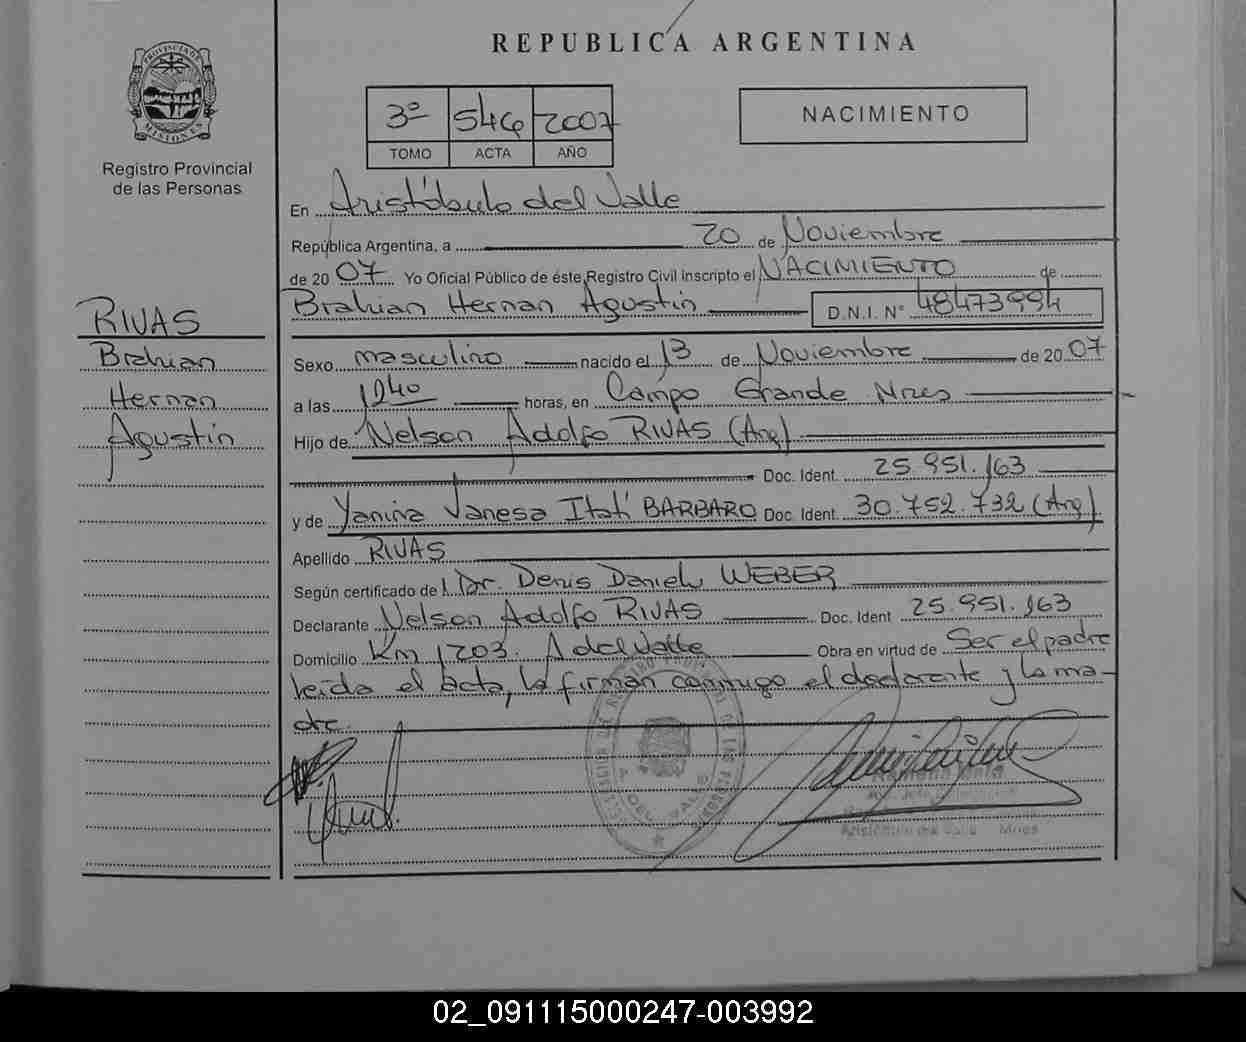 REPUBLICA ARGENTINA
PROVINCIA DE MISIONES
Registro Provincial
de las Personas
3º 546 2007
TOMO ACTA AÑO
NACIMIENTO
En Aristóbulo del Valle
República Argentina, a 20 de Noviembre
de 20 07 Yo Oficial Público de éste Registro Civil Inscripto el NACIMIENTO de
Brahian Hernan Agustín D.N.I. N° 48473994
RIVAS
Brahian
Hernan
Agustín
Sexo masculino nacido el 13 de Noviembre de 20 07
a las 1240 horas, en Campo Grande Mnes
Hijo de Nelson Adolfo RIVAS (Arg)
Doc. Ident. 25.951.163
y de Yanina Vanesa Itatí BARBARO Doc. Ident. 30.752.732 (Arg)
Apellido RIVAS
Según certificado de l Dr. Denis Daniel WEBER
Declarante Nelson Adolfo RIVAS Doc. Ident 25.951.163
Domicilio Km 1203. A del Valle Obra en virtud de Ser el padre
leída el acta, la firman conmigo el declarante y la ma-
dre.
Aristóbulo del Valle Mnes
02_091115000247-003992